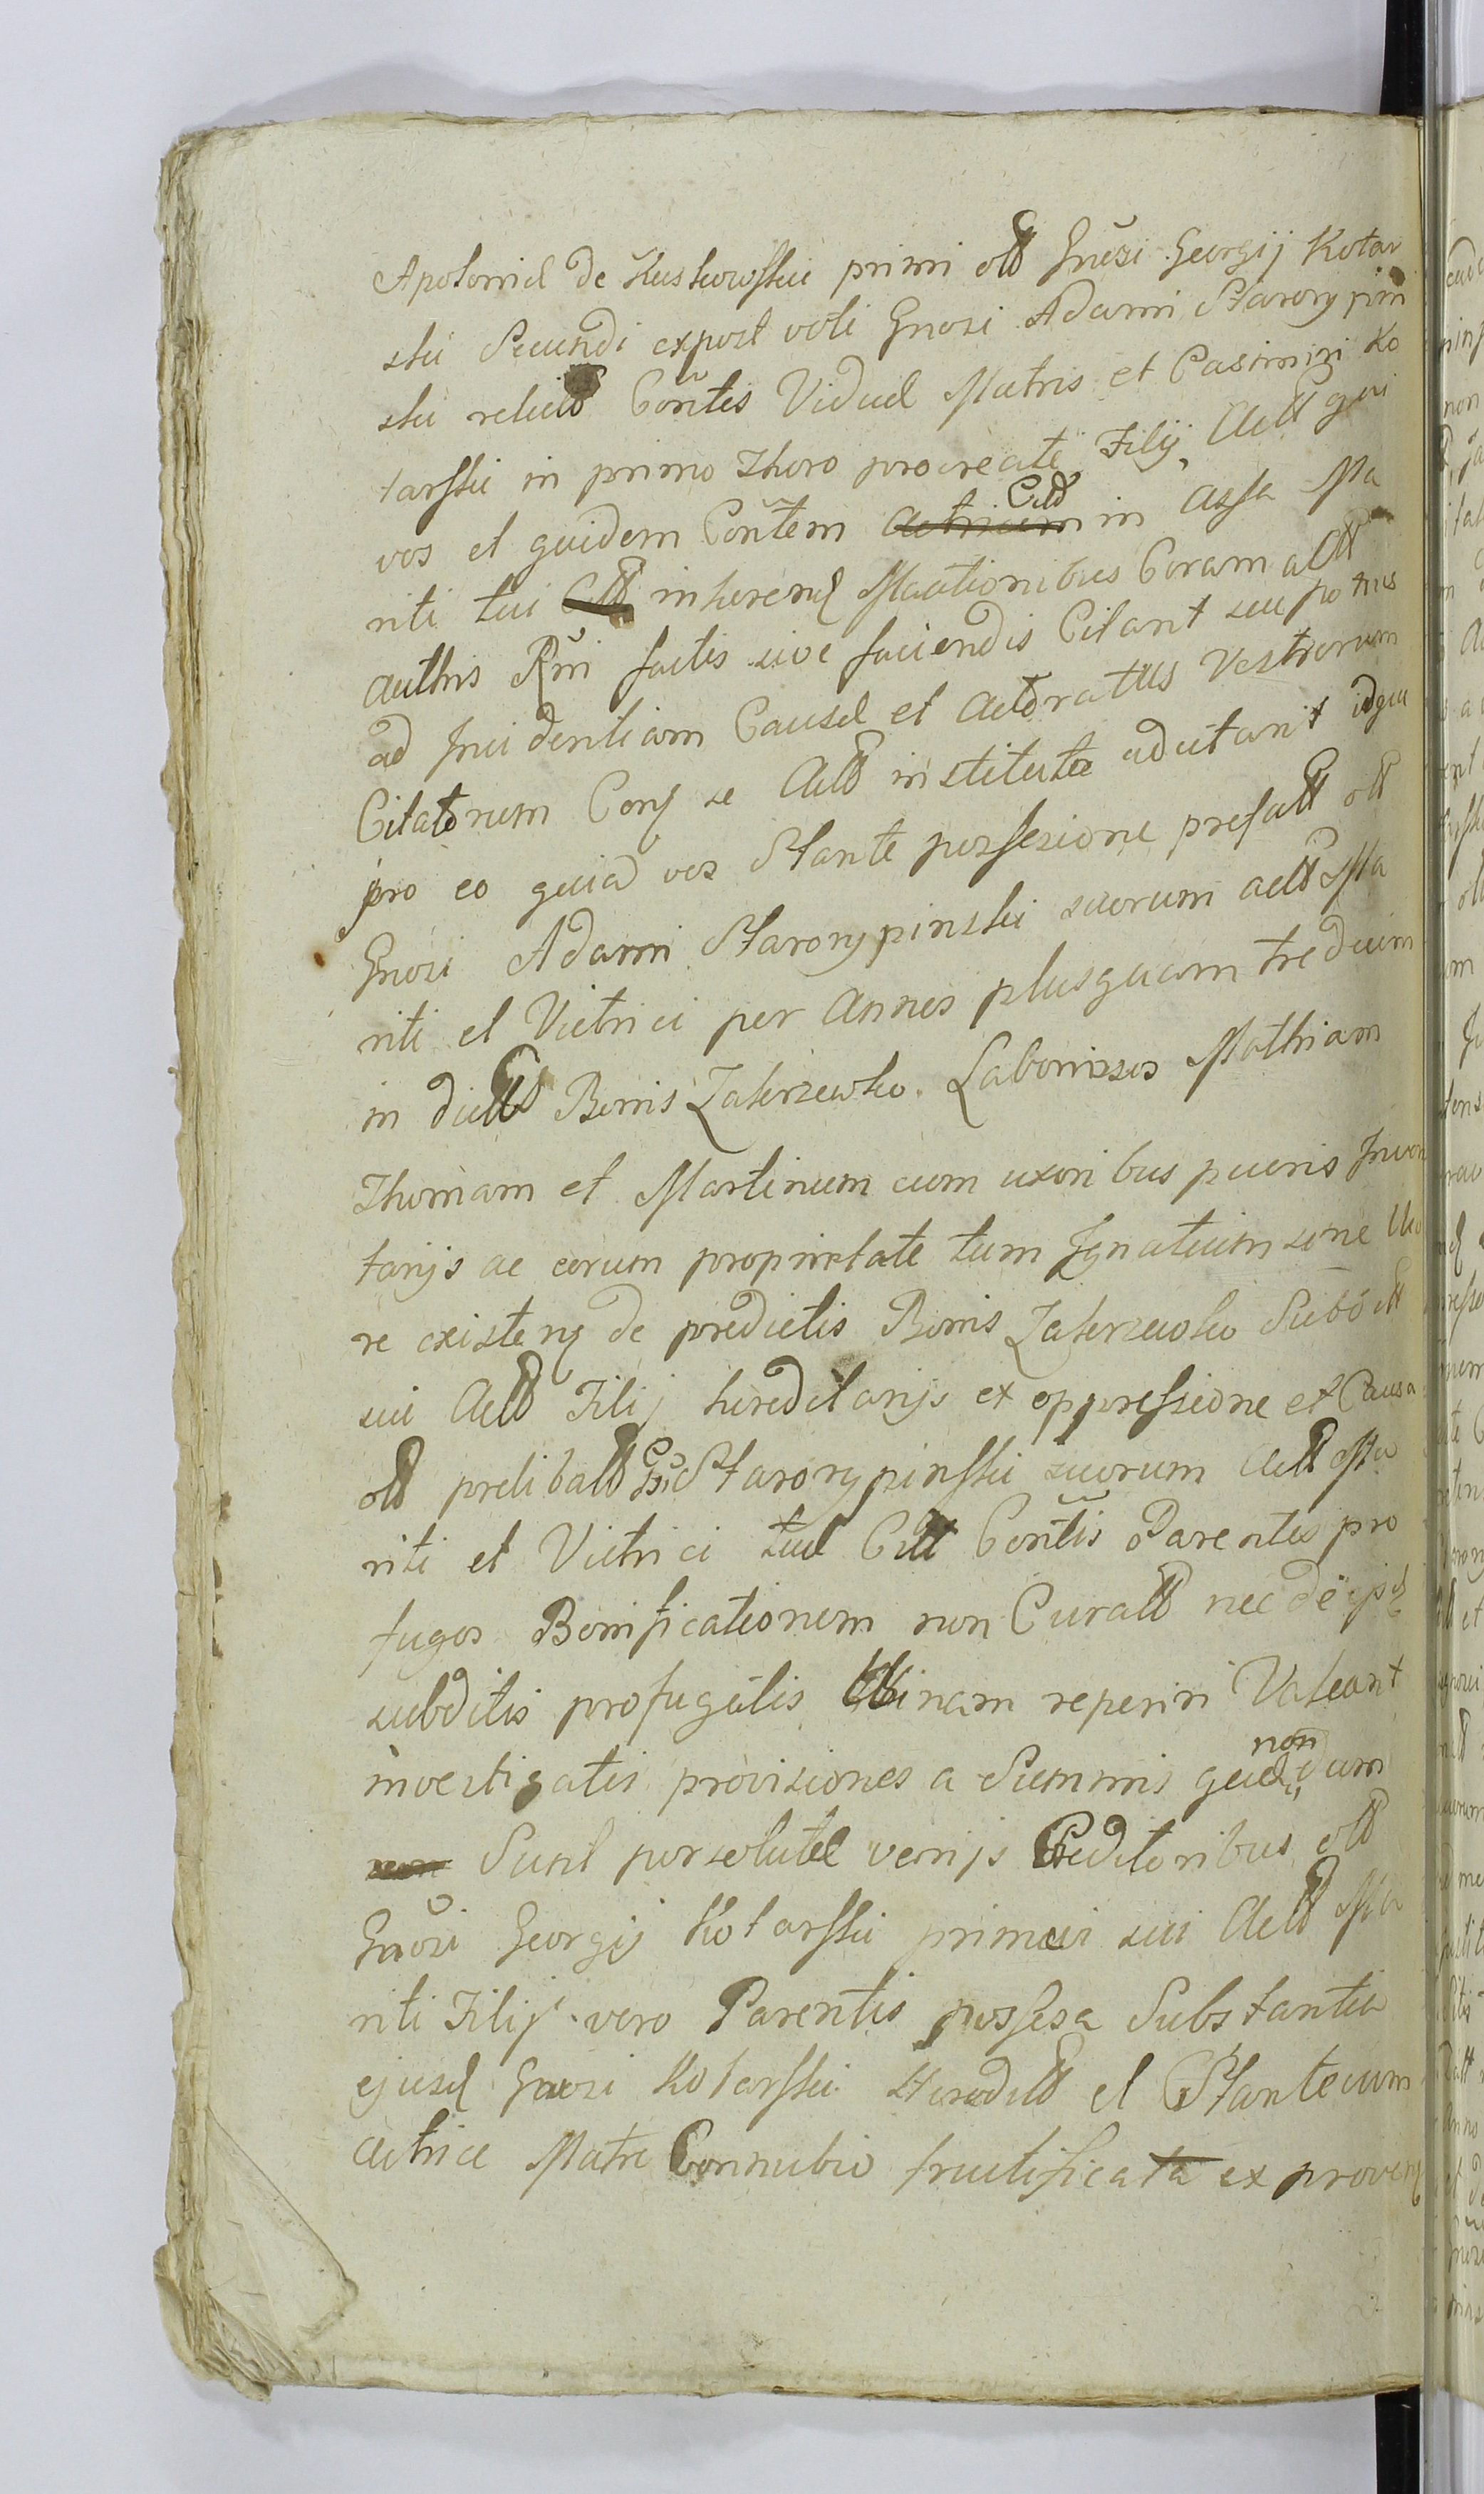 Apoloniæ de Kuskowskie primi olb Gnősi Georgij Kotar
ski Secundi expost voti Gnosi Adami Starorypin
ski relictæ Coñtis Viduæ Matris et Casimiri Ko
tarskie in primo thoro procreate Filij, Actt qui
vos et quidem Coñtem Citt in assa Ma
riti tui inherend Mationibus Coram actt
authis Rñi factis sive faciendis Citant seu potius
ad Incidentiam Causæ et actoratus Vestrorum
Citatorum Con se Actt institute adcitant idque
pro eo quia vos Stante possesione prefatt olt
Gnosi Adami Starorypinski suorum actt Ma
riti et Vitrici per Annos plusquam tredecim
in dictt Bonis Zakrzewko Laboriosos Mathiam
Thomam et Martinum cum uxoribus pueris Inven
tarijs ac eorum proprietate tum Ignatium sine Uxo
re existen de predictis Bonis Zakrzewko Subditt
sui Actt Filij hereditarijs ex oppressione et Causa
olt prelibatt Gsi Starorypinski suorum Actt Ma
riti et Vitrici tuæ Citt Coñtis Parentes pro
fugos Bonificationem non Curatt nec de ips
subditis profugitis Ubinam reperiri Valeant
investigatis provisiones a Summis quæ non dum
Sunt persolutæ verijs Creditoribus olt
Gnősi Georgij Kotarski primevi sui Actt Ma
riti Filij vero Parentis possesa Substantia
ejusd Gnosi Kotarski Hereditt et Stante cum
actrice Matre Connubio fructificata ex proven